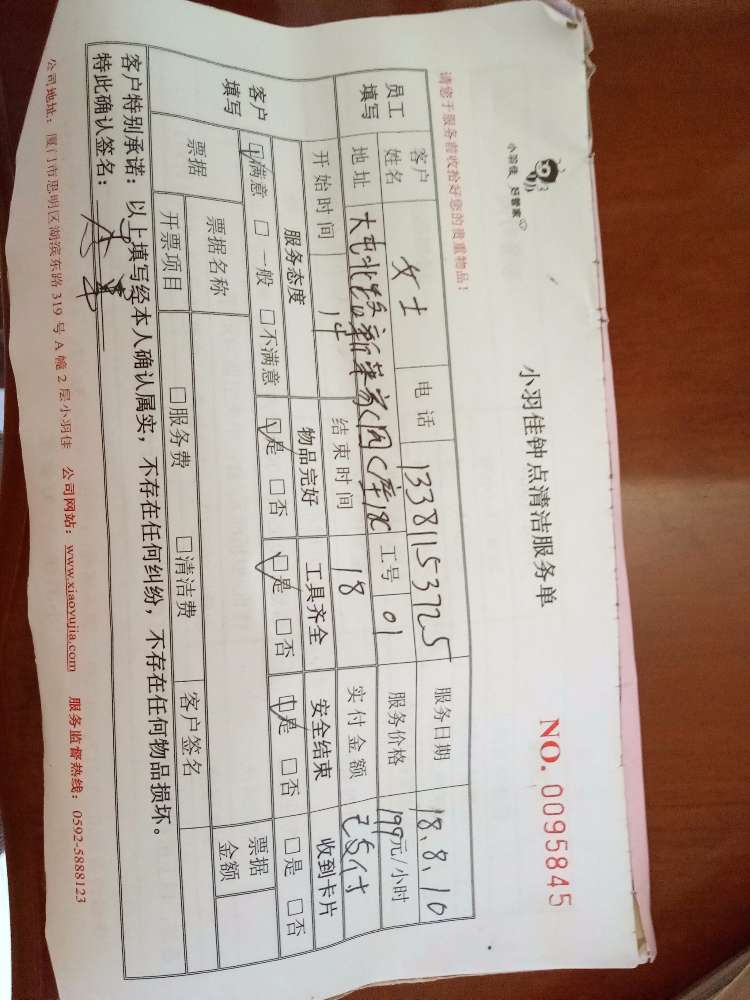 小羽佳 好管家
小羽佳钟点清洁服务单
NO. 0095845
请您于服务前收拾好您的贵重物品！
员工填写
客户姓名 女士 电话 13381153725 服务日期 18.8.10
地址 大屯北路 新荣家园C库18C 工号 01 服务价格 199元/小时
开始时间 14 结束时间 18 实付金额 已支付
客户填写
服务态度 物品完好 工具齐全 安全结束 收到卡片
☑满意 □一般 □不满意 ☑是 □否 ☑是 □否 ☑是 □否 □是 □否
票据 票据名称 票据金额
开票项目 □服务费 □清洁费 客户签名
客户特别承诺：以上填写经本人确认属实，不存在任何纠纷，不存在任何物品损坏。
特此确认签名：
公司地址：厦门市思明区湖滨东路319号A幢2层小羽佳 公司网站：www.xiaoyujia.com 服务监督热线：0592-5888123